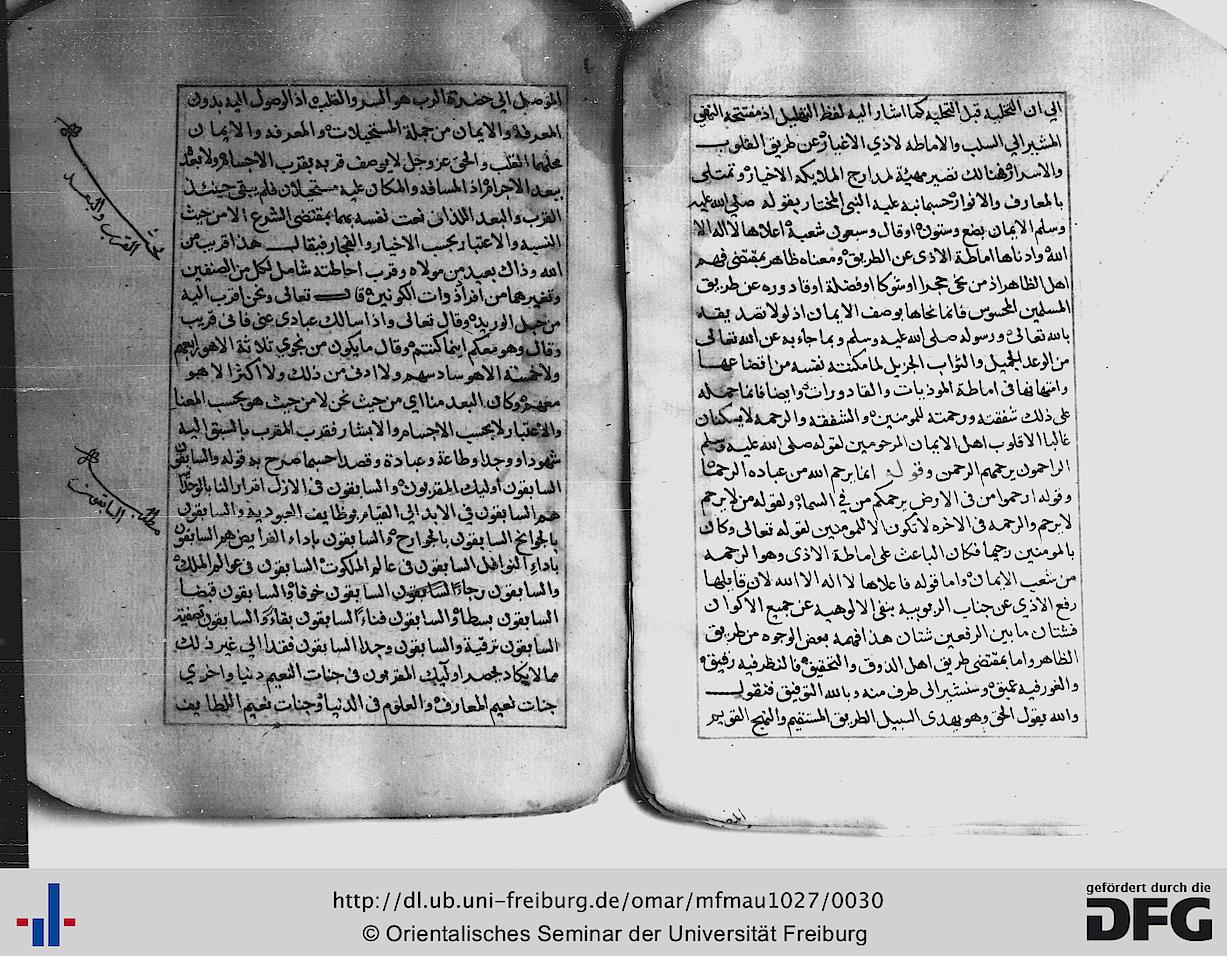 الي ان التخلية قبل التحلية كما اشار اليه لفظ التهليل اذ مفتتحه النفي
المشير الي السلب والاماطه لاذي الاغيار عن طريق القلوب
والاسرار فهنالك تصير مهيئة لمدارج الملايكه الاخيار وتمتلى
بالمعارف والانوار حسبما نبه عليه النبي المختار بقوله صلى الله عليه
وسلم الايمان بضع وستون او قال وسبعون شعبة اعلاها لا اله الا
الله وادناها اماطة الاذى عن الطريق ومعناه ظاهر بمقتضى فهم
اهل الظاهر اذ من نحى حجرا او شوكا او فضلة او قادوره عن طريق
المسلمين المحسوس فانما نحاها بوصف الايمان اذ لولا تصديقه
بالله تعالى ورسوله صلى الله عليه وسلم وبما جاء به عن الله تعالى
من الوعد الجميل والثواب الجزيل لما مكنته نفسه من اتضاعها
وامتهانها في اماطة الموذيات والقادورات وايضا فانما حمله
على ذلك شفقته ورحمته للمومنين والشفقه والرحمه لا يسكنان
غالبا الا قلوب اهل الايمان المرحومين لقوله صلى الله عليه وسلم
الراحمون يرحمهم الرحمن وقوله انما يرحم الله من عباده الرحما
وقوله ارحموا من في الارض يرحمكم من في السماء ولقوله من لا يرحم
لا يرحم والرحمه في الاخره لا تكون الا للمومنين لقوله تعالى وكان
بالمومنين رحيما فكان الباعث على اماطة الاذى وهو الرحمه
من شعب الايمان واما قوله فاعلاها لا اله الا الله لان قايلها
رفع الاذي عن جناب الربوبيه بنفي الالوهيه عن جميع الاكوان
فشتان ما بين الرفعين شتان هذا فهمه بعض الوجوه من طريق
الظاهر واما بمقتضى طريق اهل الذوق والتحقيق فالنظر فيه رقيق
والغور فيه عميق وسنشير الى طرف منه وبالله التوفيق فنقول
والله يقول الحق وهو يهدى السبيل الطريق المستقيم والنهج القويم
الموصل الي حضرة الرب هو السر والقلب اذ الوصول اليه بدون
المعرفة والايمان من جملة المستحيلات والمعرفه والايمان
محلهما القلب والحق عز وجل لا يوصف قربه بقرب الاجسام ولا بعده
ببعد الاجرام اذ المسافه والمكان عليه مستحيلان فلم يبق حينئذ
القرب والبعد اللذان نعت نفسه بهما بمقتضى الشرع الا من حيث
النسبه والاعتبار بحسب الاخيار والفجار فيقال هذا قريب من
الله وذاك بعيد من مولاه وقرب احاطته شامل لكل من الصنفين
وتغيرهما من افراد ذوات الكونين قال تعالى ونحن اقرب اليه
من حبل الوريد وقال تعالى واذا سالك عبادي عني فاني قريب
وقال وهو معكم اينما كنتم وقال ما يكون من نجوي ثلاثة الا هو رابعهم
ولا خمسة الا هو سادسهم ولا ادنى من ذلك ولا اكثر الا هو
معهم وكان البعد منا اي من حيث نحن لا من حيث هو بحسب المعنا
والاعتبار لا بحسب الاجسام والابشار فقرب المقرب بالسبق اليه
شهودا ووجدا وطاعة وعبادة وقصدا حسبما صرح به قوله والسابقون
السابقون اوليك المقربون والسابقون في الازل اقرارا لنا بالوحدانية
هم السابقون في الابد الى القيام بوظايف العبودية والسابقون
بالجوانح السابقون بالجوارح والسابقون باداء الفرايض هم السابقون
باداء النوافل السابقون في عالم الملكوت السابقون في عوالم الملك
والسابقون رجاءا السابقون خوفا والسابقون قبضا
السابقون بسطا والسابقون فناءا السابقون بقاءا والسابقون تصفية
السابقون ترقية والسابقون وجدا السابقون فقدا الي غير ذلك
مما لا يكاد يحصر اوليك المقربون في جنات النعيم دنيا واخري
جنات نعيم المعارف والعلوم في الدنيا وجنات نعيم اللطايف
القرب والبعد
مطلب السابقون
http://dl.ub.uni-freiburg.de/omar/mfmau1027/0030
© Orientalisches Seminar der Universität Freiburg
gefördert durch die
DFG